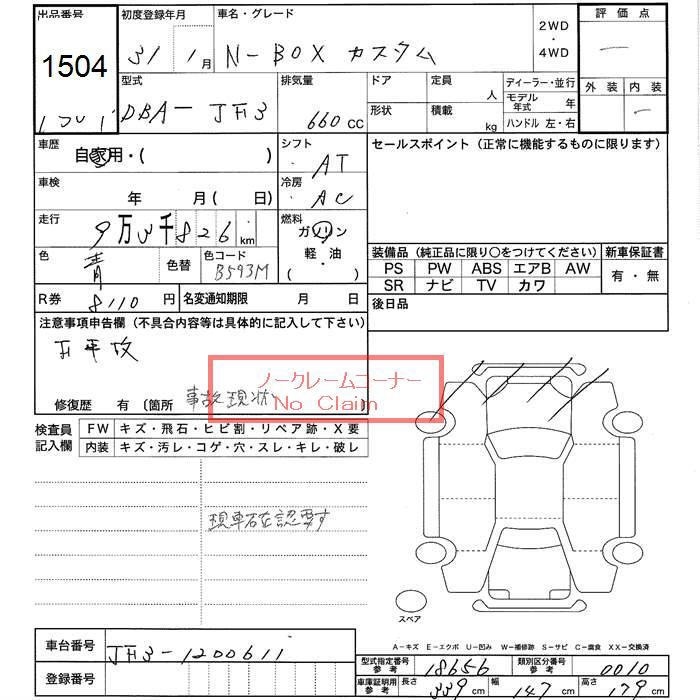 出品番号
1504
初度登録年月
31 1月
車名・グレード
N-BOX カスタム
2WD
・
4WD
評価点
外装 内装
型式
DBA- JF3
排気量
660 cc
ドア
形状
定員
人
積載
kg
ディーラー・並行
モデル年式 年
ハンドル 左・右
車歴
自家用・( )
シフト
AT
車検
年 月( 日)
冷房
AC
走行
9万3千826km
燃料
ガソリン
軽・油
( )
色
青
色替
色コード
B593M
R券
8110円
名変通知期限 月 日
セールスポイント(正常に機能するものに限ります)
装備品(純正品に限り〇をつけてください)
新車保証書
PS PW ABS エアB AW
SR ナビ TV カワ
有・無
後日品
注意事項申告欄(不具合内容等は具体的に記入して下さい)
修復歴 有〔箇所 事故現状 〕
ノークレームコーナー
No Claim
検査員
記入欄
FW キズ・飛石・ヒビ割・リペア跡・X要
内装 キズ・汚レ・コゲ・穴・スレ・キレ・破レ
現車確認要す
スペア
A−キズ E−エクボ U−凹み W−補修跡 S−サビ C−腐食 XX−交換済
車台番号
JF3-1200611
登録番号
型式指定番号
参考
18656
類別区分番号
参考
0010
車庫証明用
参考
長さ 339cm 幅 147cm 高さ 179cm